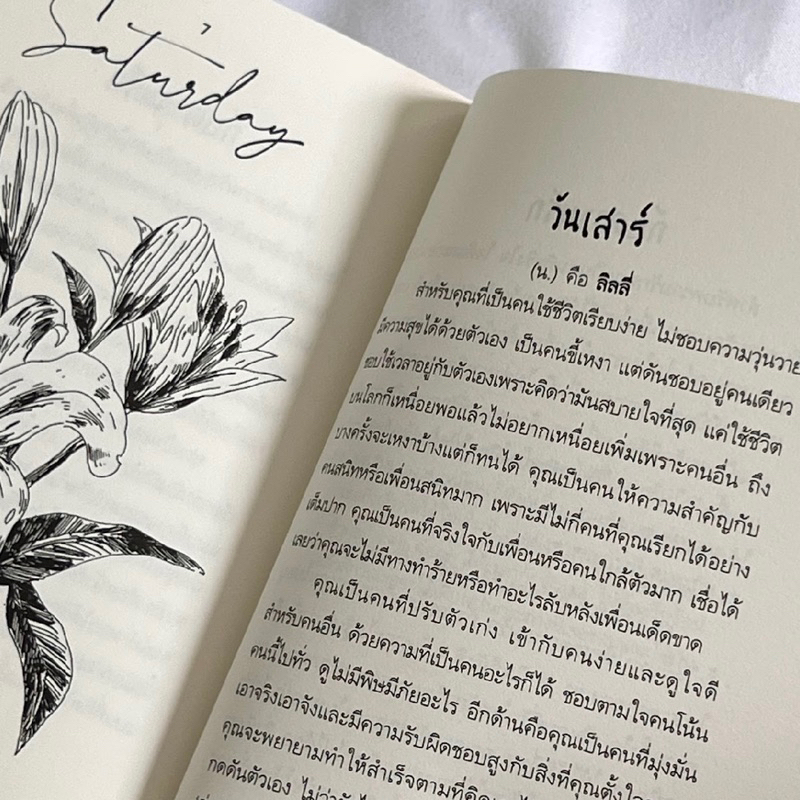 Saturday
วันเสาร์
(น.) คือ ลิลลี่
สำหรับคุณที่เป็นคนใช้ชีวิตเรียบง่าย ไม่ชอบความวุ่นวาย
มีความสุขได้ด้วยตัวเอง เป็นคนขี้เหงา แต่ดันชอบอยู่คนเดียว
ชอบใช้เวลาอยู่กับตัวเองเพราะคิดว่ามันสบายใจที่สุด แค่ใช้ชีวิต
บนโลกก็เหนื่อยพอแล้วไม่อยากเหนื่อยเพิ่มเพราะคนอื่น ถึง
บางครั้งจะเหงาบ้างแต่ก็ทนได้ คุณเป็นคนให้ความสำคัญกับ
คนสนิทหรือเพื่อนสนิทมาก เพราะมีไม่กี่คนที่คุณเรียกได้อย่าง
เต็มปาก คุณเป็นคนที่จริงใจกับเพื่อนหรือคนใกล้ตัวมาก เชื่อได้
เลยว่าคุณจะไม่มีทางทำร้ายหรือทำอะไรลับหลังเพื่อนเด็ดขาด
คุณเป็นคนที่ปรับตัวเก่ง เข้ากับคนง่ายและดูใจดี
สำหรับคนอื่น ด้วยความที่เป็นคนอะไรก็ได้ ชอบตามใจคนโน้น
คนนี้ไปทั่ว ดูไม่มีพิษมีภัยอะไร อีกด้านคือคุณเป็นคนที่มุ่งมั่น
เอาจริงเอาจังและมีความรับผิดชอบสูงกับสิ่งที่คุณตั้งใจ
คุณจะพยายามทำให้สำเร็จตามที่
กดดันตัวเอง